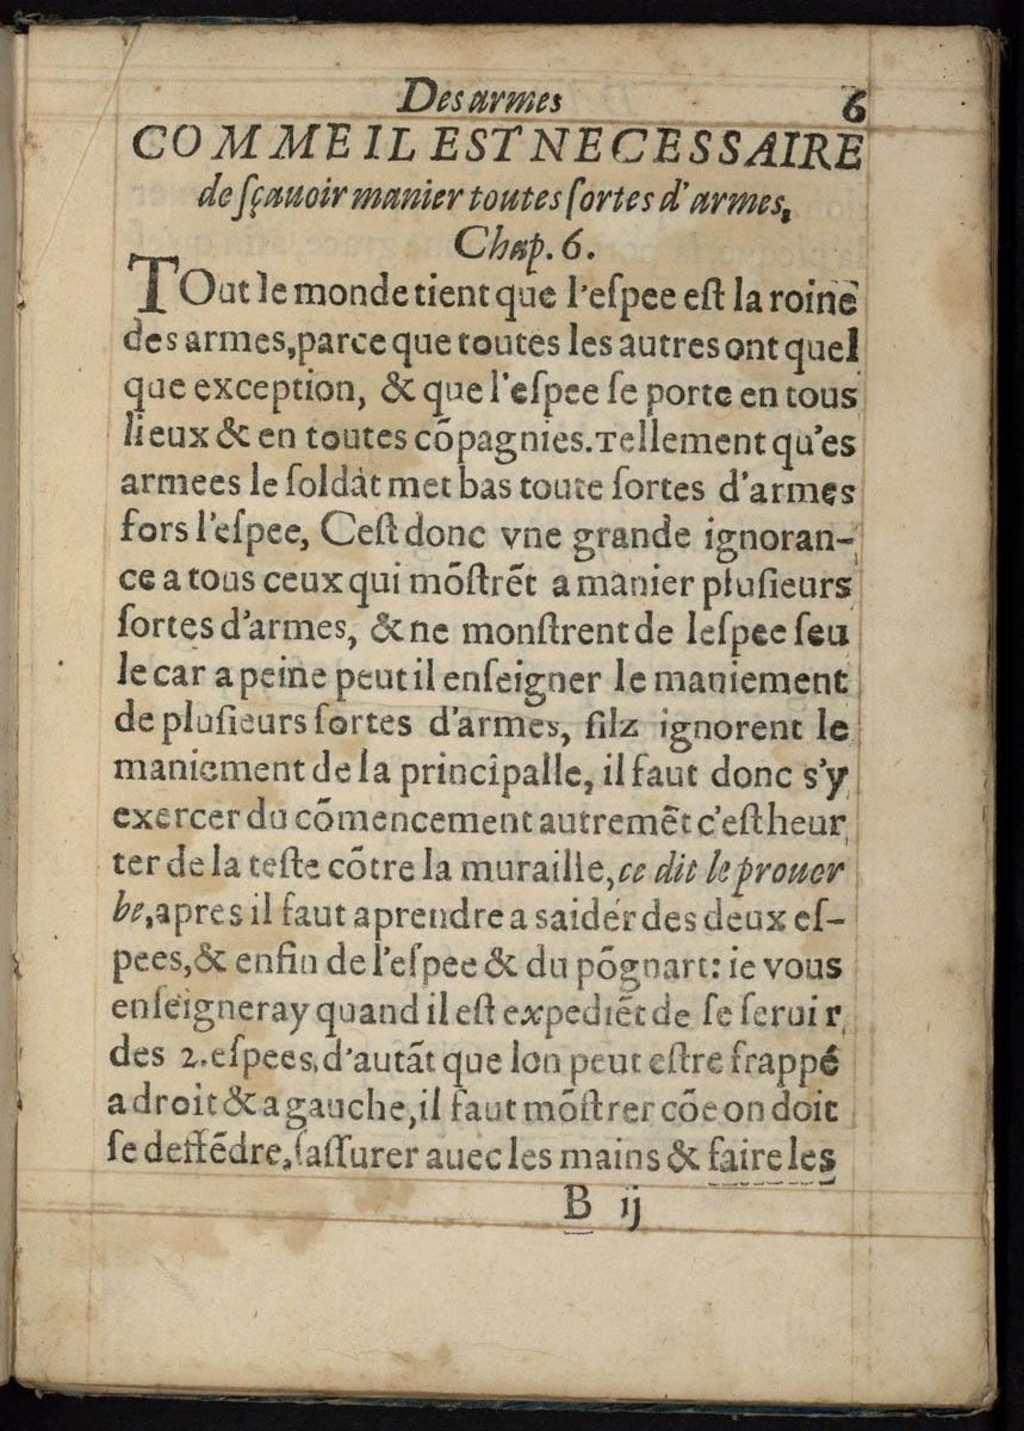 Des armes 6
COMME IL EST NECESSAIRE
de ſçauoir manier toutes ſortes d'armes,
Chap. 6.
TOut le monde tient que l'eſpee eſt la roine
des armes, parce que toutes les autres ont quel
que exception, & que l'eſpee ſe porte en tous
lieux & en toutes cõpagnies. Tellement qu'es
armees le ſoldat met bas toute ſortes d'armes
fors l'eſpee, Ceſt donc vne grande ignoran-
ce a tous ceux qui mõſtrẽt a manier pluſieurs
ſortes d'armes, & ne monſtrent de leſpee ſeu
le car a peine peut il enſeigner le maniement
de pluſieurs ſortes d'armes, ſilz ignorent le
maniement de la principalle, il faut donc s'y
exercer du cõmencement autremẽt c'eſt heur
ter de la teſte cõtre la muraille, ce dit le prouer
be, apres il faut aprendre a saider des deux eſ-
pees, & enfin de l'eſpee & du põgnart: ie vous
enſeigneray quand il eſt expediẽt de ſe ſeruir
des 2. eſpees, d'autãt que lon peut eſtre frappé
a droit & a gauche, il faut mõſtrer cõe on doit
ſe deffẽdre, ſaſſurer auec les mains & faire les
B ij